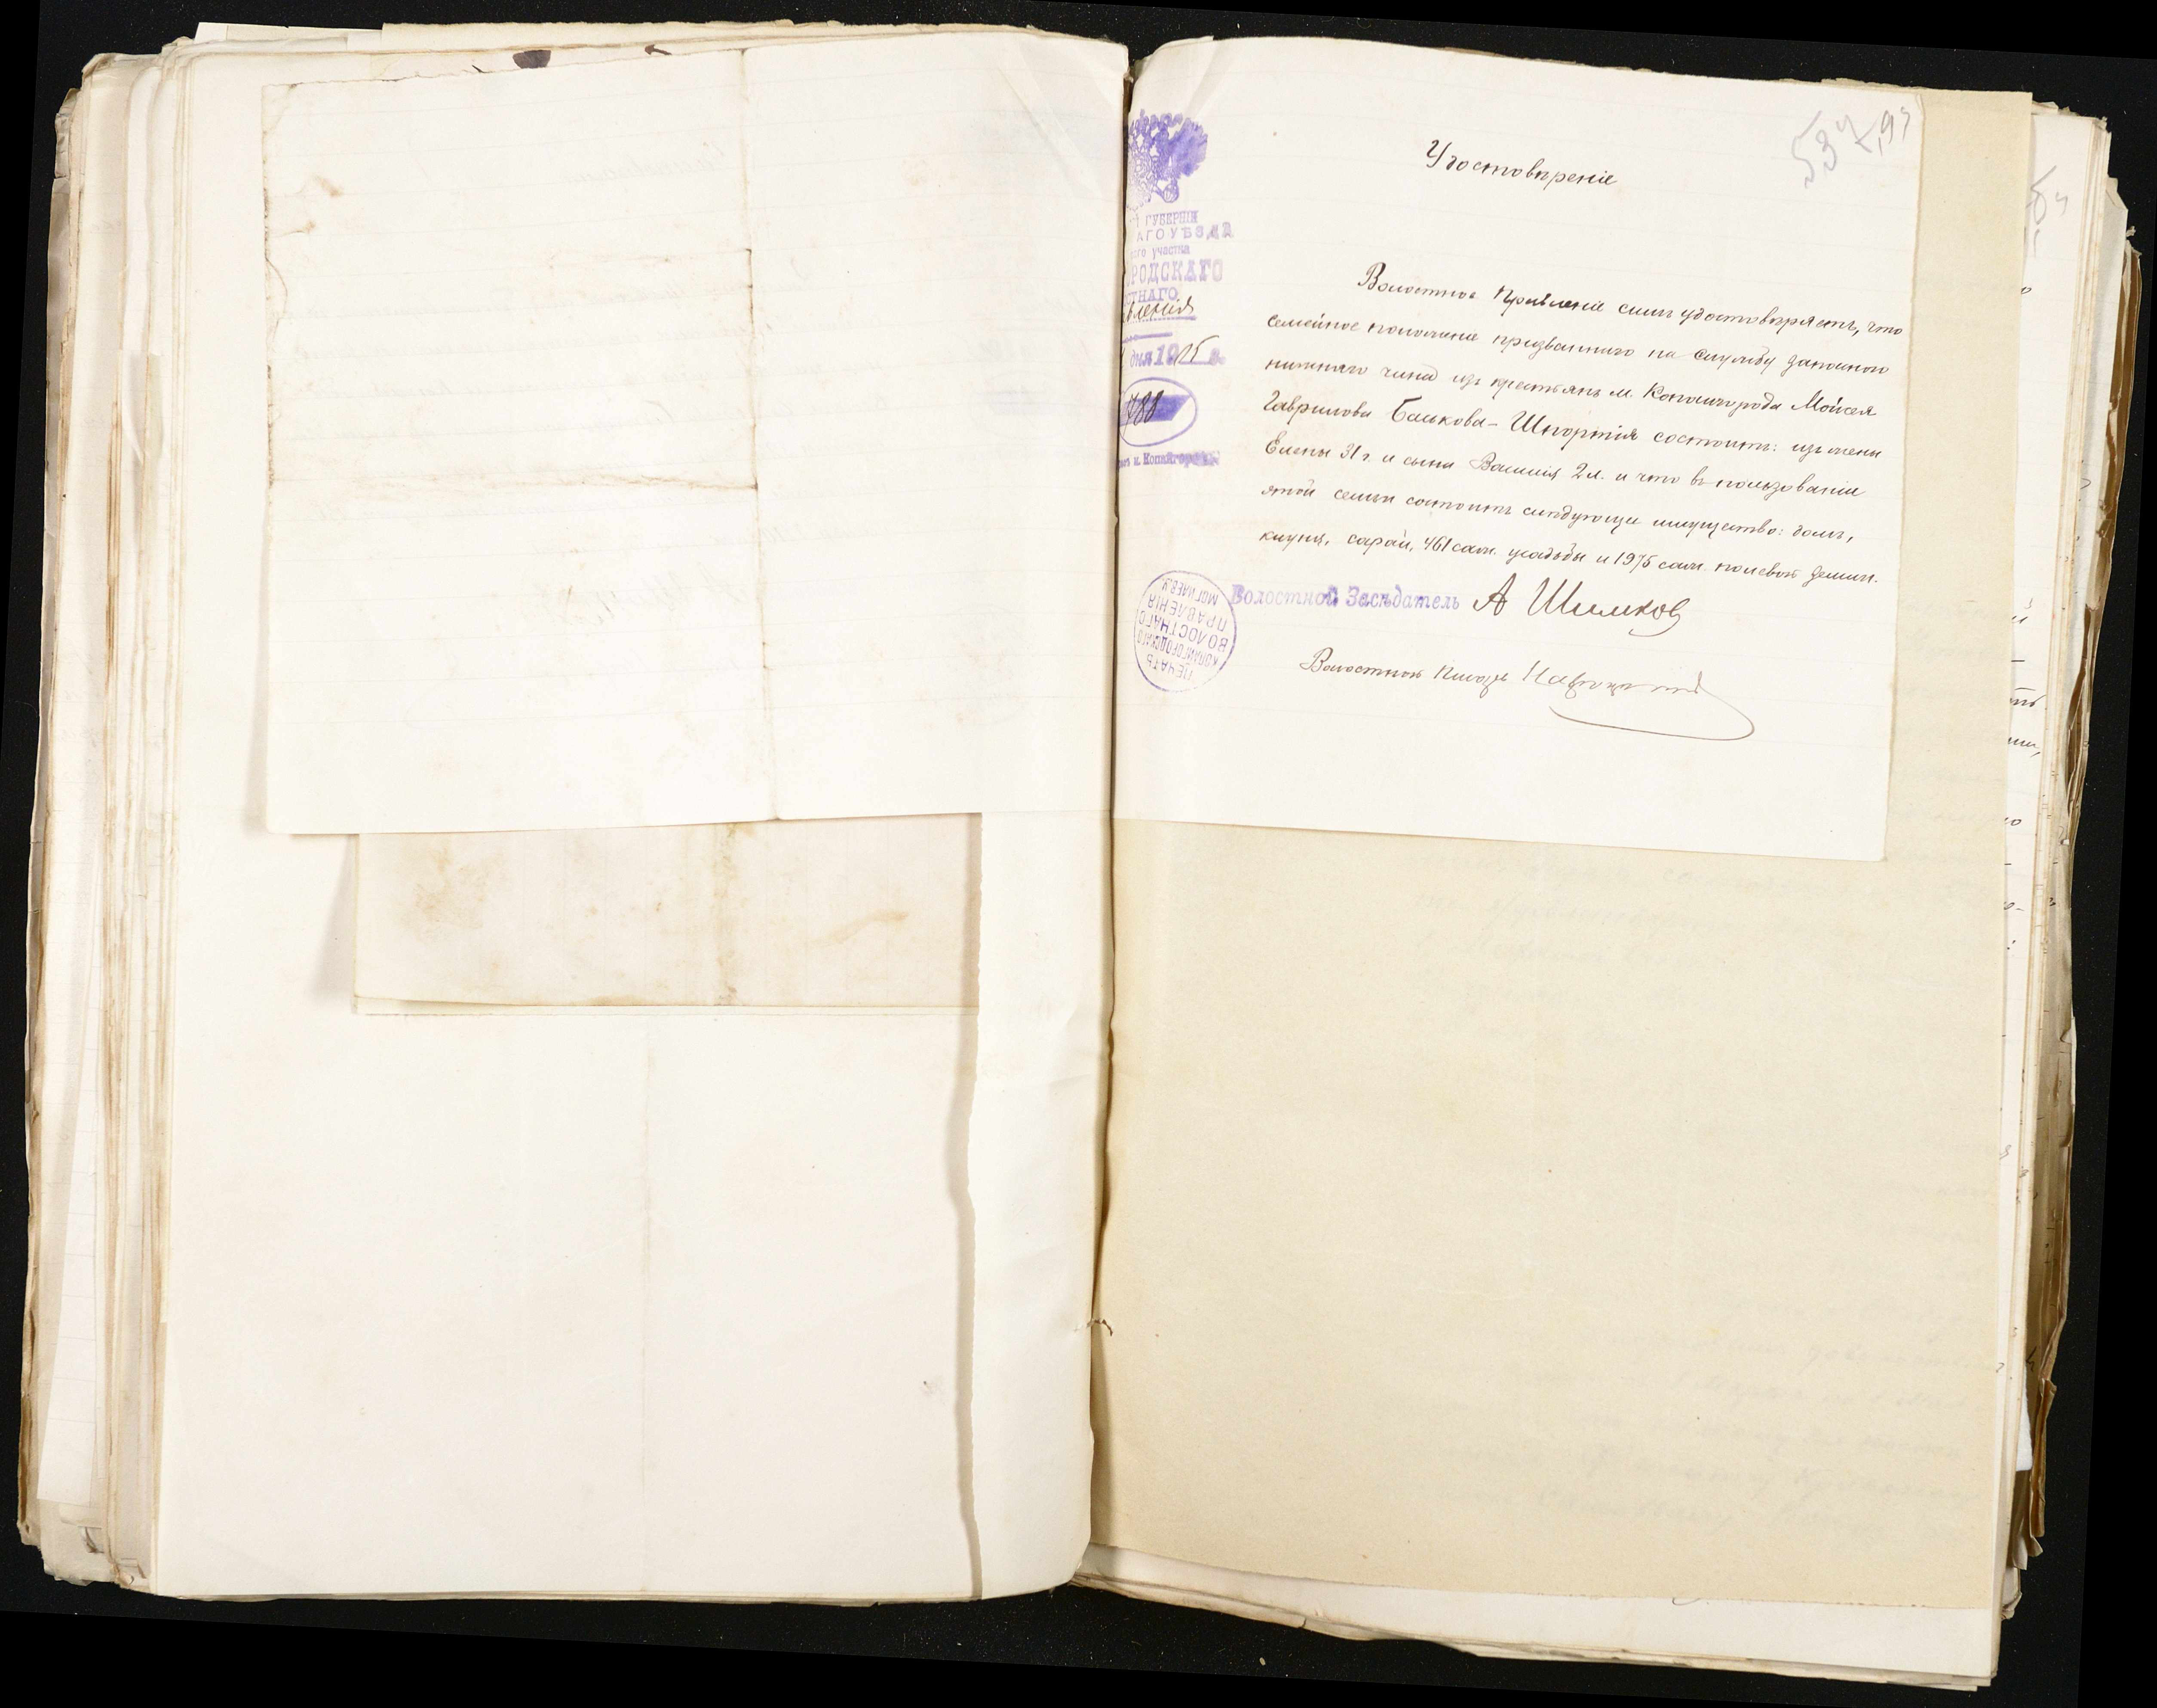 Удостовѣреніе
ГУБЕРНІИ
АГО УѢЗДА
аго участка
РОДСКАГО
СТНАГО
вленія
дня 1915 г.
788
м. Копайгородъ
Волостное Правленіе симъ удостовѣряетъ, что
семейное положеніе призваннаго на службу запаснаго
нижняго чина изъ крестьянъ м. Копайгорода Мойсея
Гаврилова Балькова-Шпортія состоитъ: изъ жены
Елены 31 г. и сына Василія 2 л. и что въ пользованіи
этой семьи состоитъ слѣдующее имущество: домъ,
клуня, сарай, 461 саж. усадьбы и 1975 саж. полевой земли.
Волостной Засѣдатель А Шилков
Волостной Писарь
ПЕЧАТЬ
КОПАЙГОРОДСКАГО
ВОЛОСТНАГО
ПРАВЛЕНІЯ
МОГИЛЕВ. У.